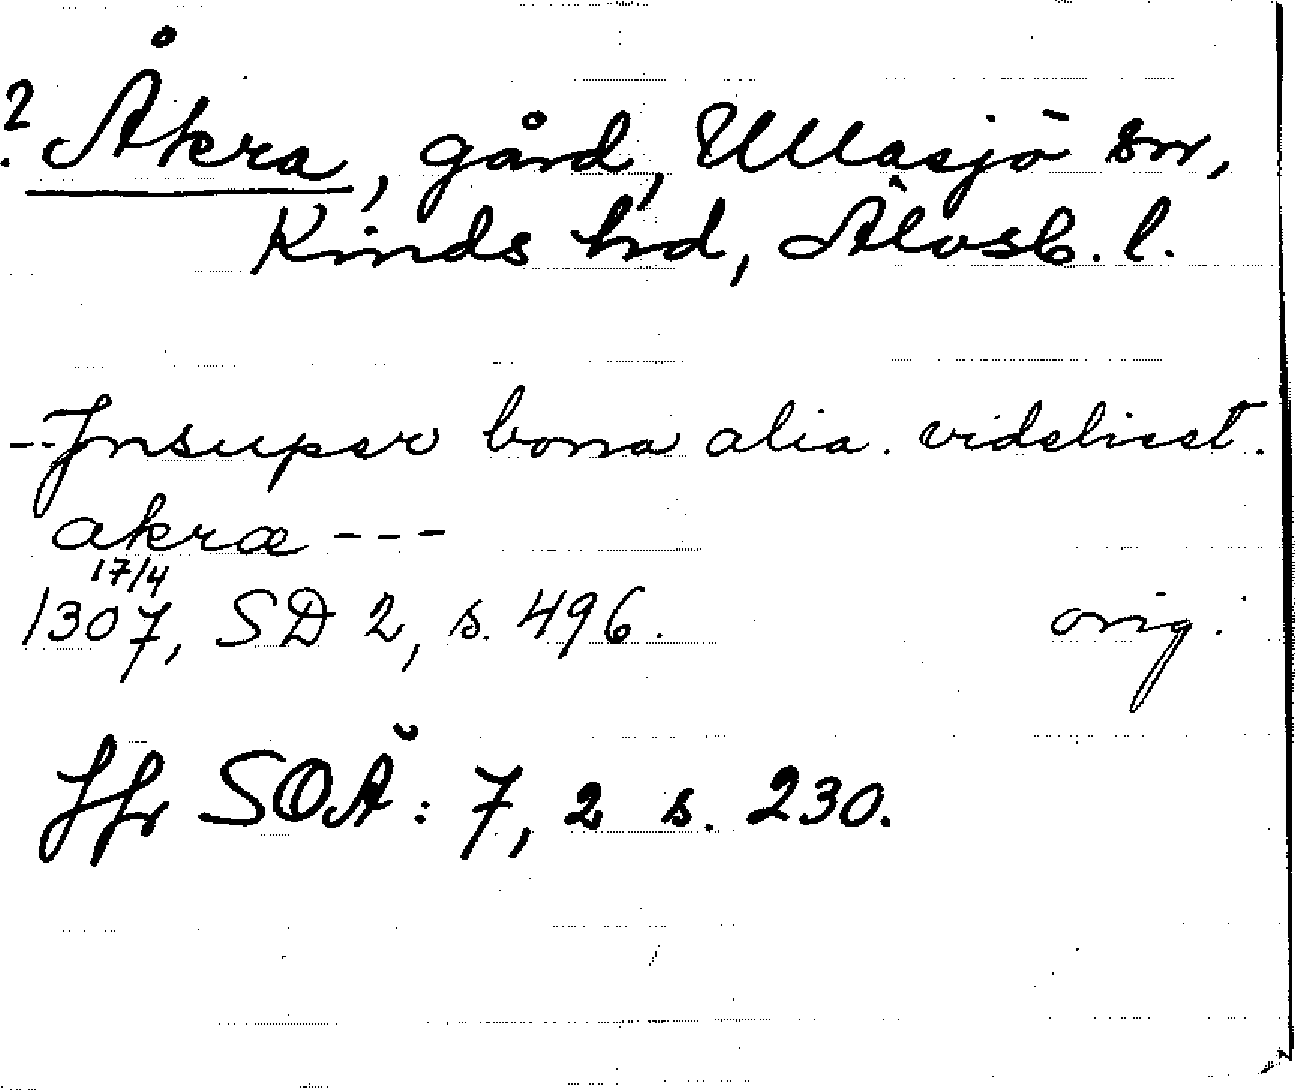 ? Åkra, gård, Ullasjö sn,
Kinds hd, Älvsb. l.
--Jnsuper bona alia. videlicet.
akræ ---
17/4
1307, SD 2, s. 496. orig.
Jfr SOÄ: 7, 2 s. 230.